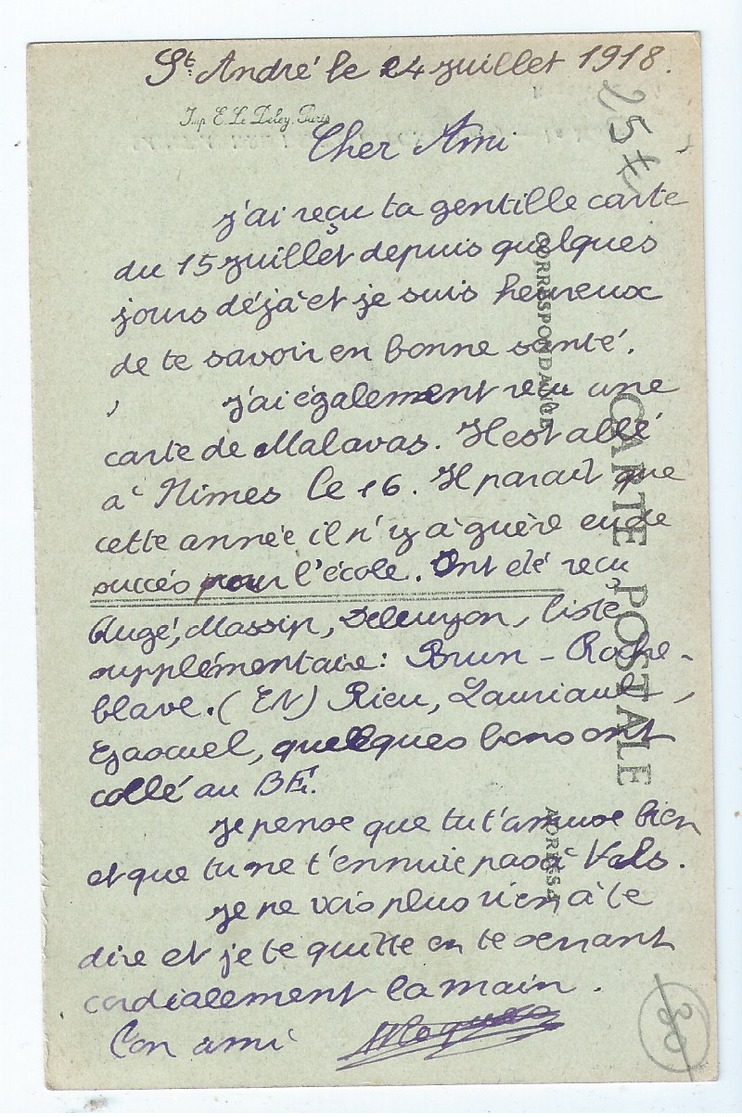 St. André le 24 juillet 1918.
Imp. E. Le Deley, Paris
25 t
Cher Ami
j'ai reçu ta gentille carte
du 15 juillet depuis quelques
jours déjà et je suis heureux
de te savoir en bonne santé.
j'ai également reçu une
carte de Malavas. Il est allé
à Nîmes le 16. Il parait que
cette année il n'y a guère eu de
succés pour l'école. Ont été reçu
Augé, Massip, liste
supplémentaire : Brun - Roche-
blave. (EN) Rieu,
quelques bons ont
collé au BE.
je pense que tu t'amuse bien
et que tu ne t'ennuie pas à Vals.
je ne vois plus rien à te
dire et je te quitte en te serrant
cordialement la main.
Ton ami
CORRESPONDANCE
CARTE POSTALE
ADRESSE
30